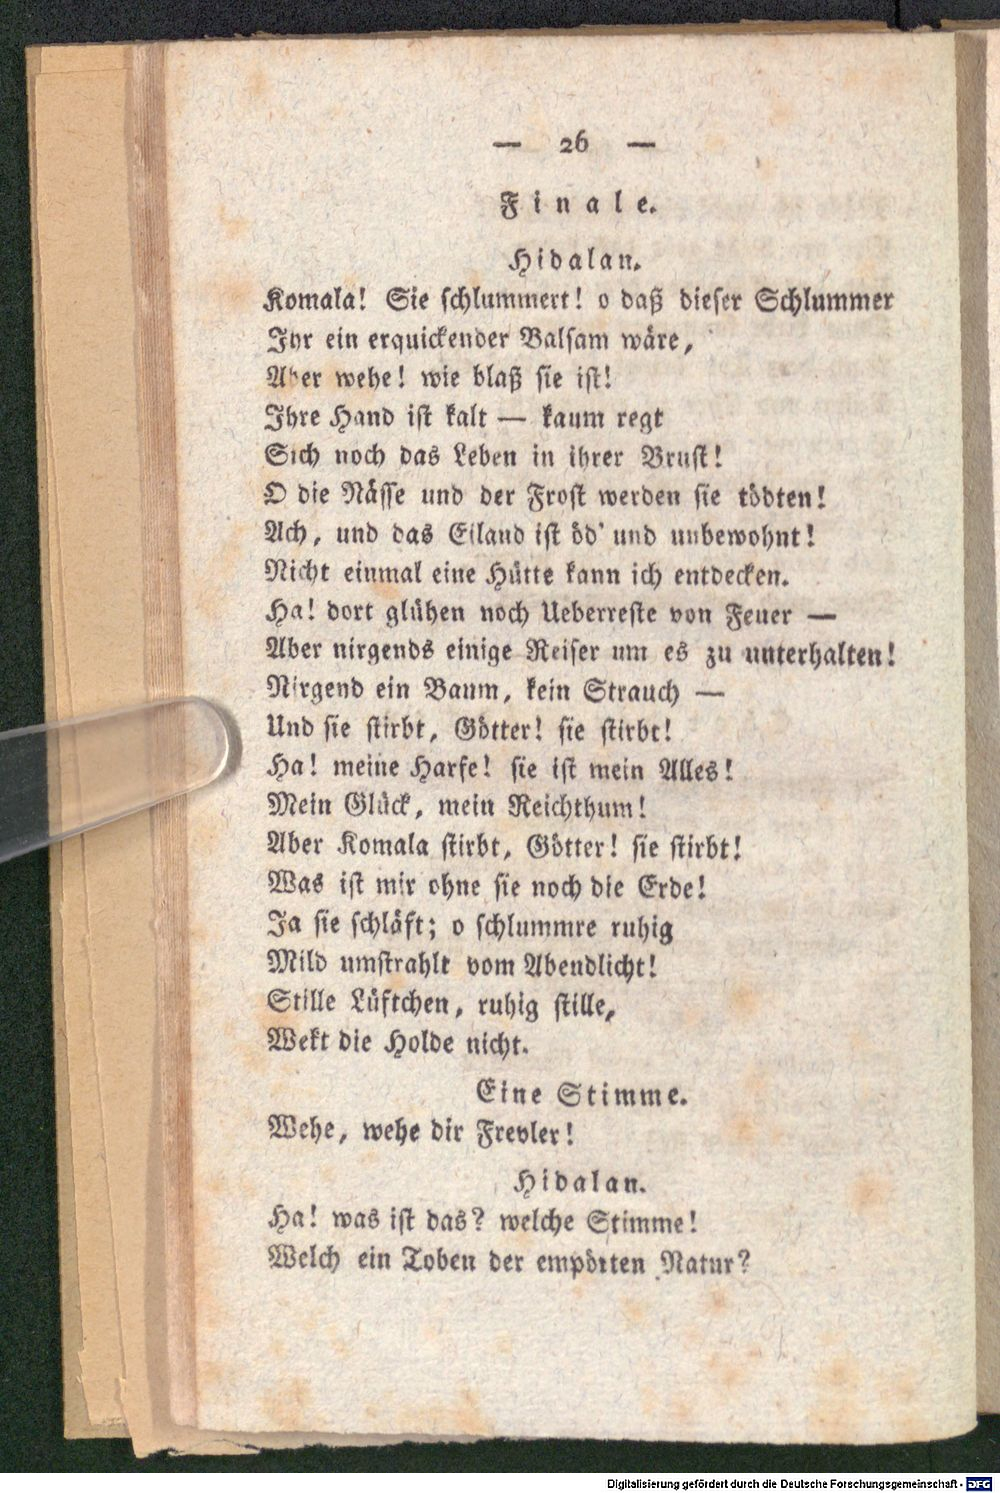 — 26 —
Finale.
Hidalan.
Komala! Sie schlummert! o daß dieser Schlummer
Ihr ein erquickender Balsam wäre,
Aber wehe! wie blaß sie ist!
Ihre Hand ist kalt — kaum regt
Sich noch das Leben in ihrer Brust!
O die Nässe und der Frost werden sie tödten!
Ach, und das Eiland ist öd' und unbewohnt!
Nicht einmal eine Hütte kann ich entdecken.
Ha! dort glühen noch Ueberreste von Feuer —
Aber nirgends einige Reiser um es zu unterhalten!
Nirgend ein Baum, kein Strauch —
Und sie stirbt, Götter! sie stirbt!
Ha! meine Harfe! sie ist mein Alles!
Mein Glück, mein Reichthum!
Aber Komala stirbt, Götter! sie stirbt!
Was ist mir ohne sie noch die Erde!
Ja sie schläft; o schlummre ruhig
Mild umstrahlt vom Abendlicht!
Stille Lüftchen, ruhig stille,
Wekt die Holde nicht.
Eine Stimme.
Wehe, wehe dir Frevler!
Hidalan.
Ha! was ist das? welche Stimme!
Welch ein Toben der empörten Natur?
Digitalisierung gefördert durch die Deutsche Forschungsgemeinschaft - DFG